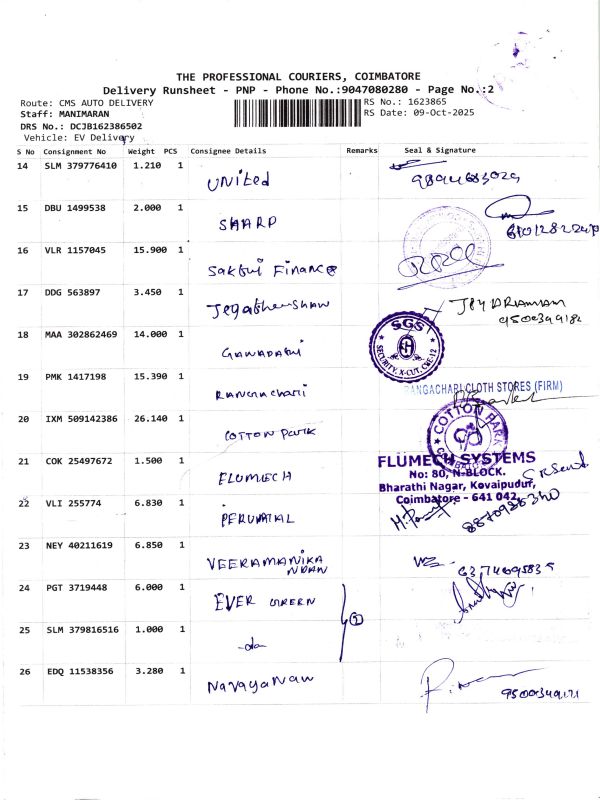 THE PROFESSIONAL COURIERS, COIMBATORE
Delivery Runsheet - PNP - Phone No.:9047080280 - Page No.:2
Route: CMS AUTO DELIVERY
RS No.: 1623865
Staff: MANIMARAN
RS Date: 09-Oct-2025
DRS No.: DCJB162386502
Vehicle: EV Delivery
S No Consignment No Weight PCS Consignee Details Remarks Seal & Signature
14 SLM 379776410 1.210 1 United
15 DBU 1499538 2.000 1 SHARP
16 VLR 1157045 15.900 1 Sakthi Finance
17 DDG 563897 3.450 1
18 MAA 302862469 14.000 1
SGS
SECURITY, X-CUT, CBE-12
19 PMK 1417198 15.390 1 RANGACHARI
RANGACHARI CLOTH STORES (FIRM)
20 IXM 509142386 26.140 1 COTTON PARK
COTTON PARK
21 COK 25497672 1.500 1 FLUMECH
FLUMECH SYSTEMS
No: 80, N-BLOCK.
Bharathi Nagar, Kovaipudur,
Coimbatore - 641 042.
22 VLI 255774 6.830 1
23 NEY 40211619 6.850 1 VEERAMANIKA
NDAN
24 PGT 3719448 6.000 1 EVER GREEN
25 SLM 379816516 1.000 1 -do-
26 EDQ 11538356 3.280 1 Narayanan
9500349171